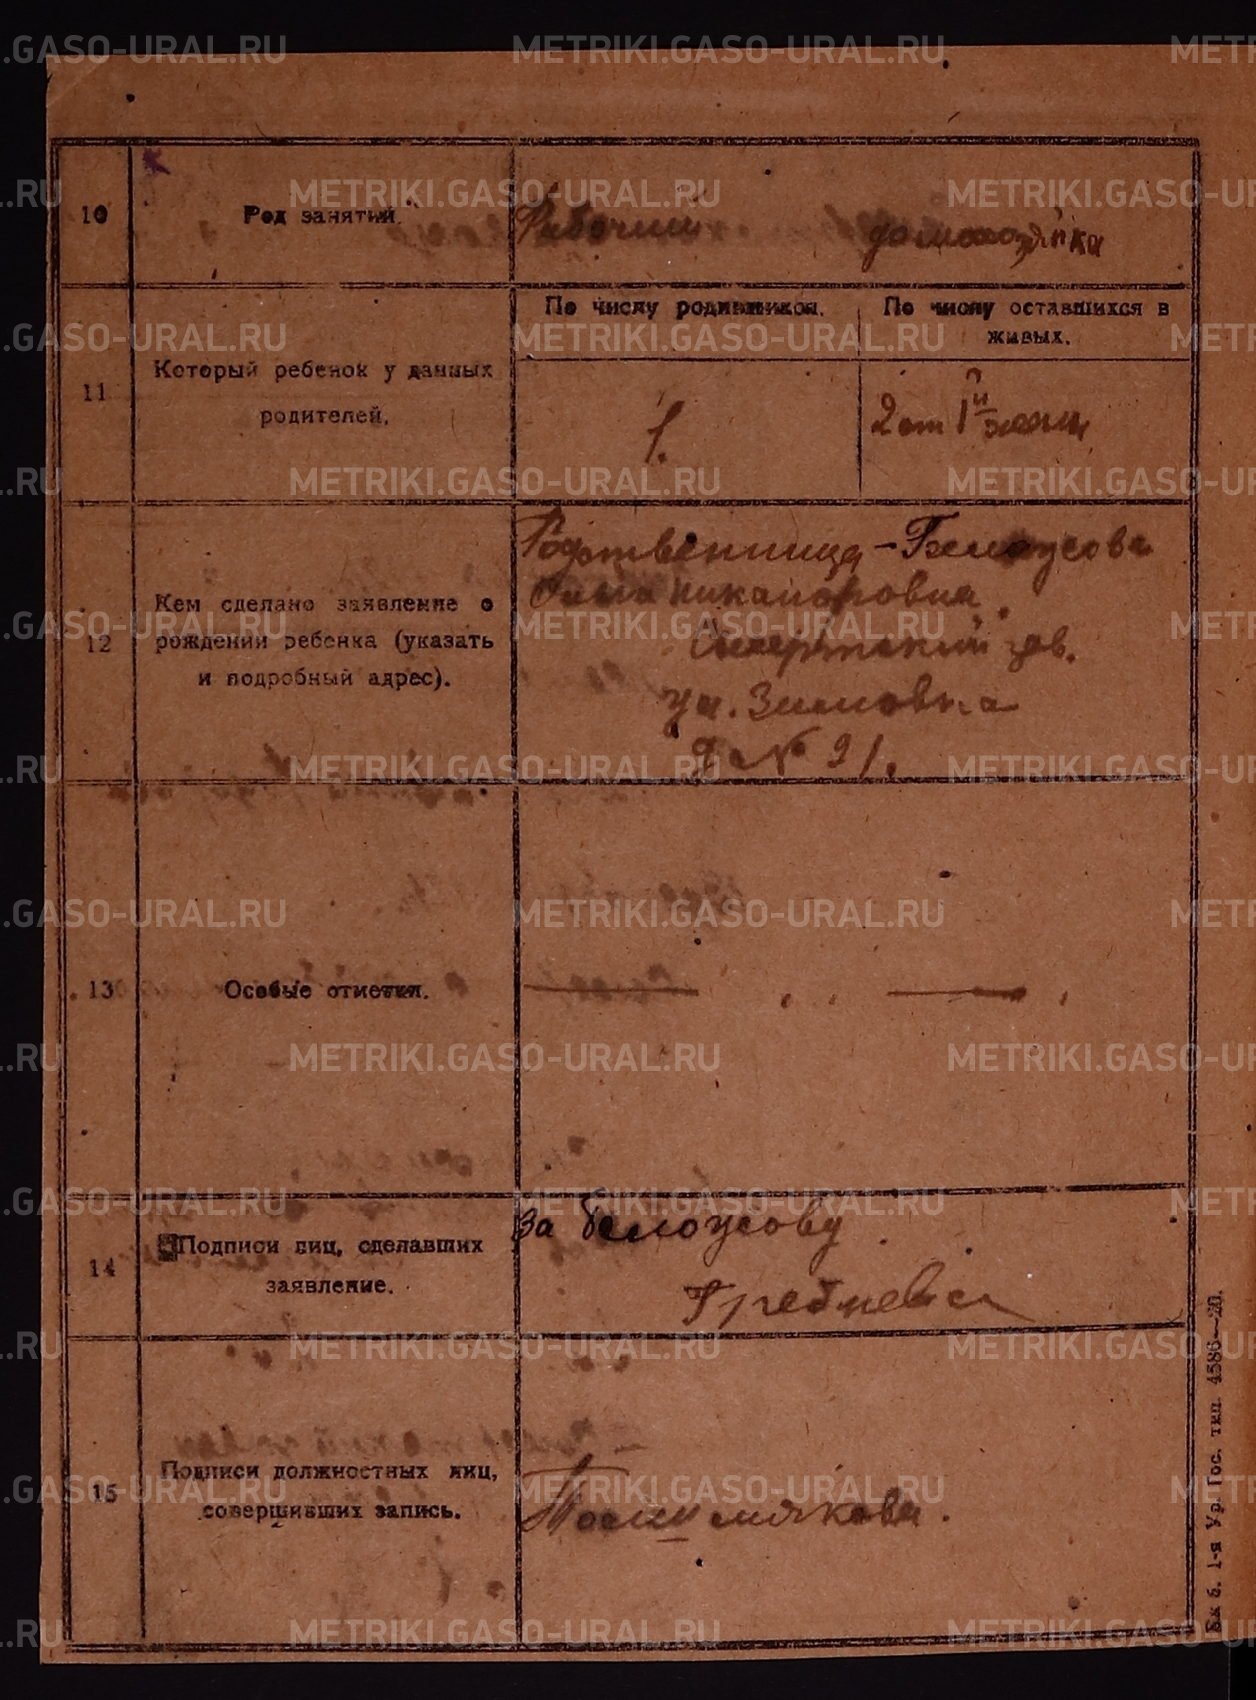 METRIKI.GASO-URAL.RU
10
Род занятий.
Рабочий
домохозяйка
11
Который ребенок у данных
родителей.
По числу родившихся.
По числу оставшихся в
живых.
1.
2 от 1й жены
12
Кем сделано заявление о
рождении ребенка (указать
и подробный адрес).
Родственница - Белоусова
Никаноровна.
Сысертский зав.
ул. Зимовка
д № 91.
13
Особые отметки.
14
Подписи лиц, сделавших
заявление.
За Белоусову
Гребнева
15
Подписи должностных лиц,
совершивших запись.
Ек б. 1-я Ур. Гос. тип. 4586—20.